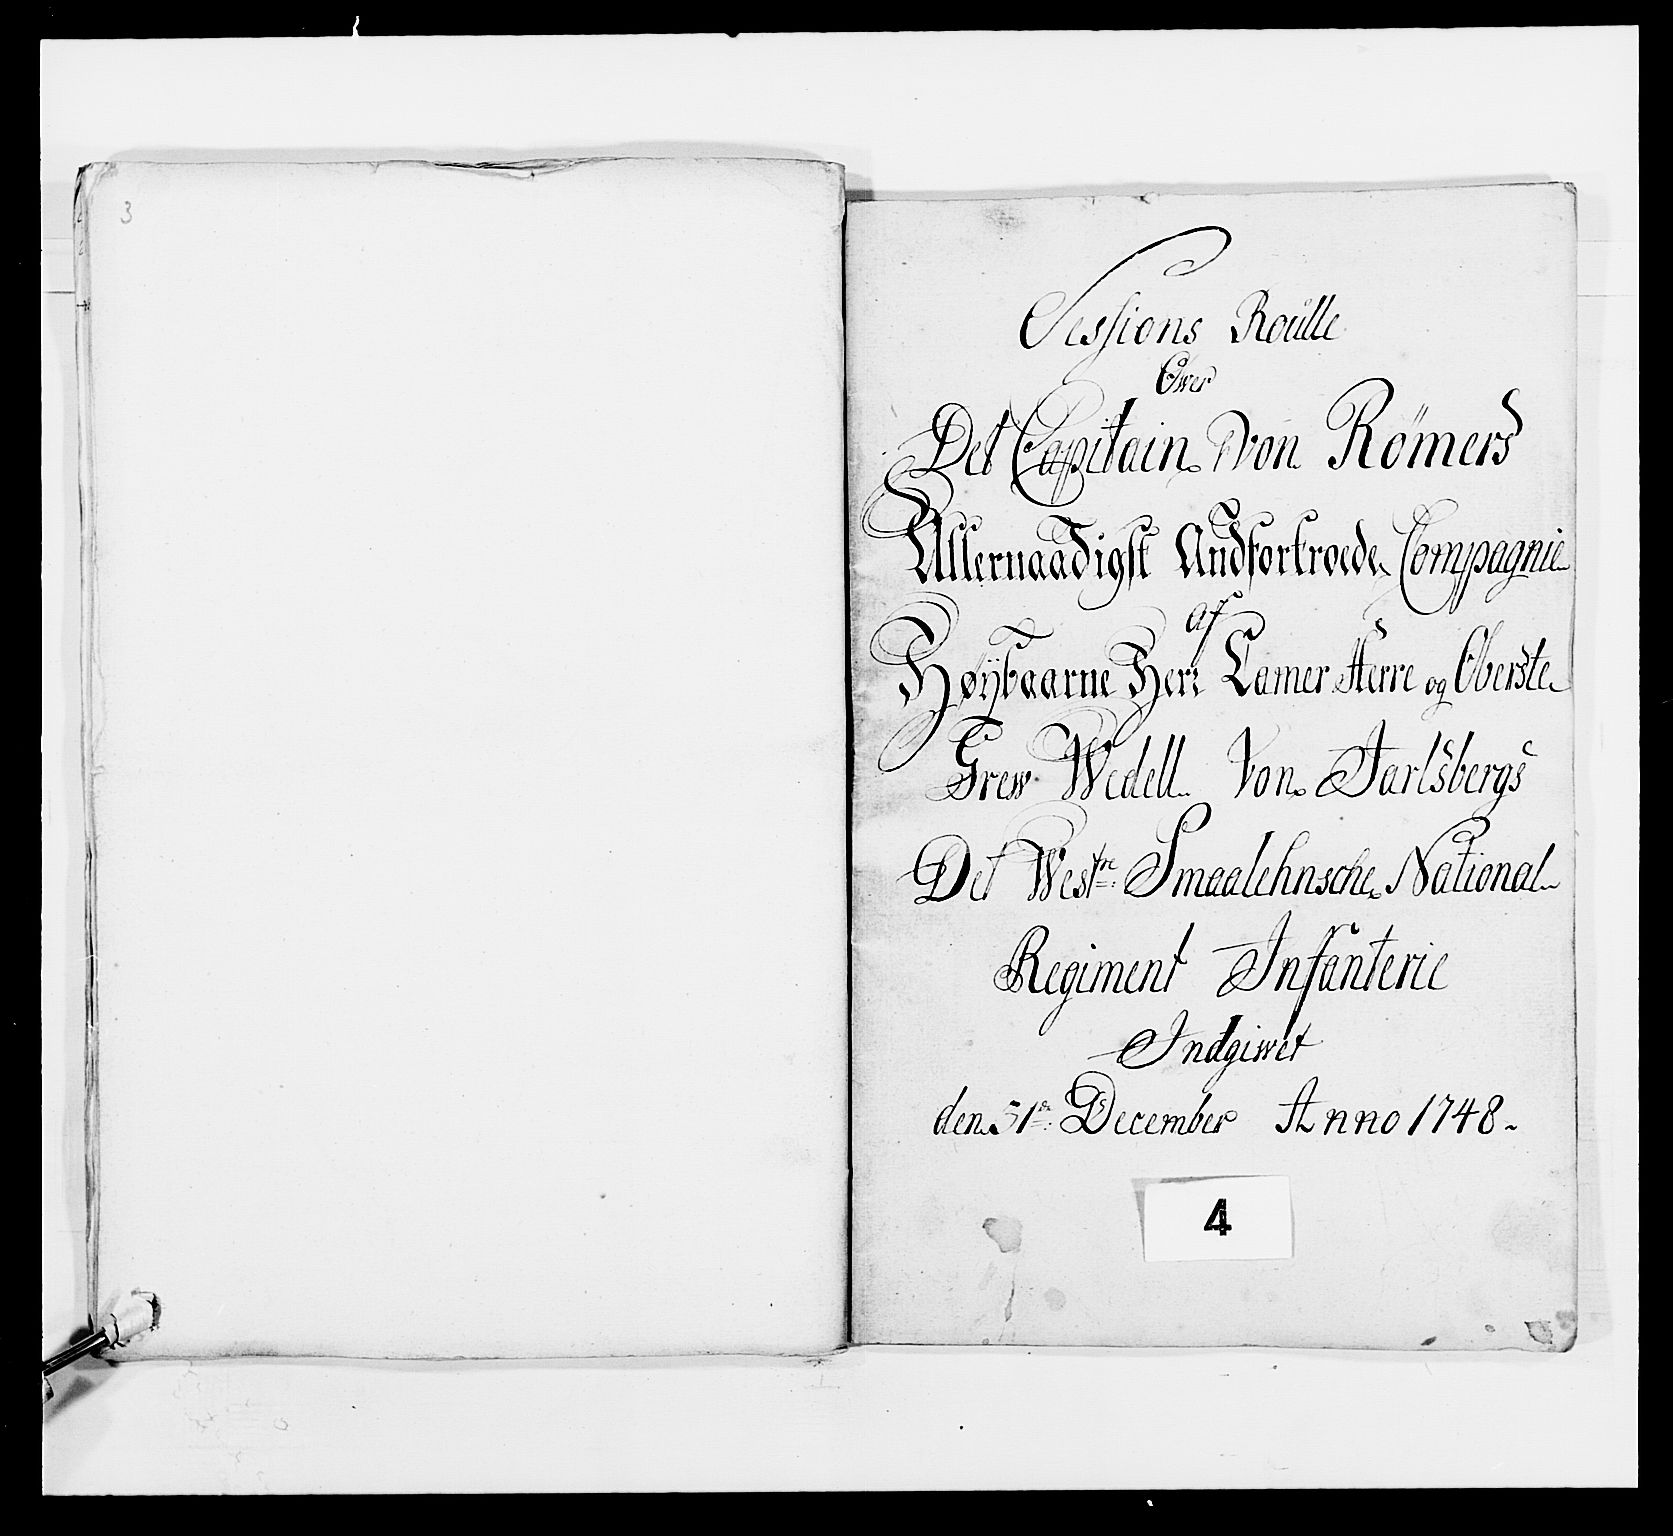 3
Sessions Roülle
Over
Det Capitain von Römers
Allernaadigst Andfortroede Compagnie
af
Høÿbaarne Herr Camer Herre og Oberste
Grew Wedell Von Jarlsbergs
Det Westre Smaalehnsche National
Regiment Infanterie
Indgiwet
den 31te December Anno 1748.
4